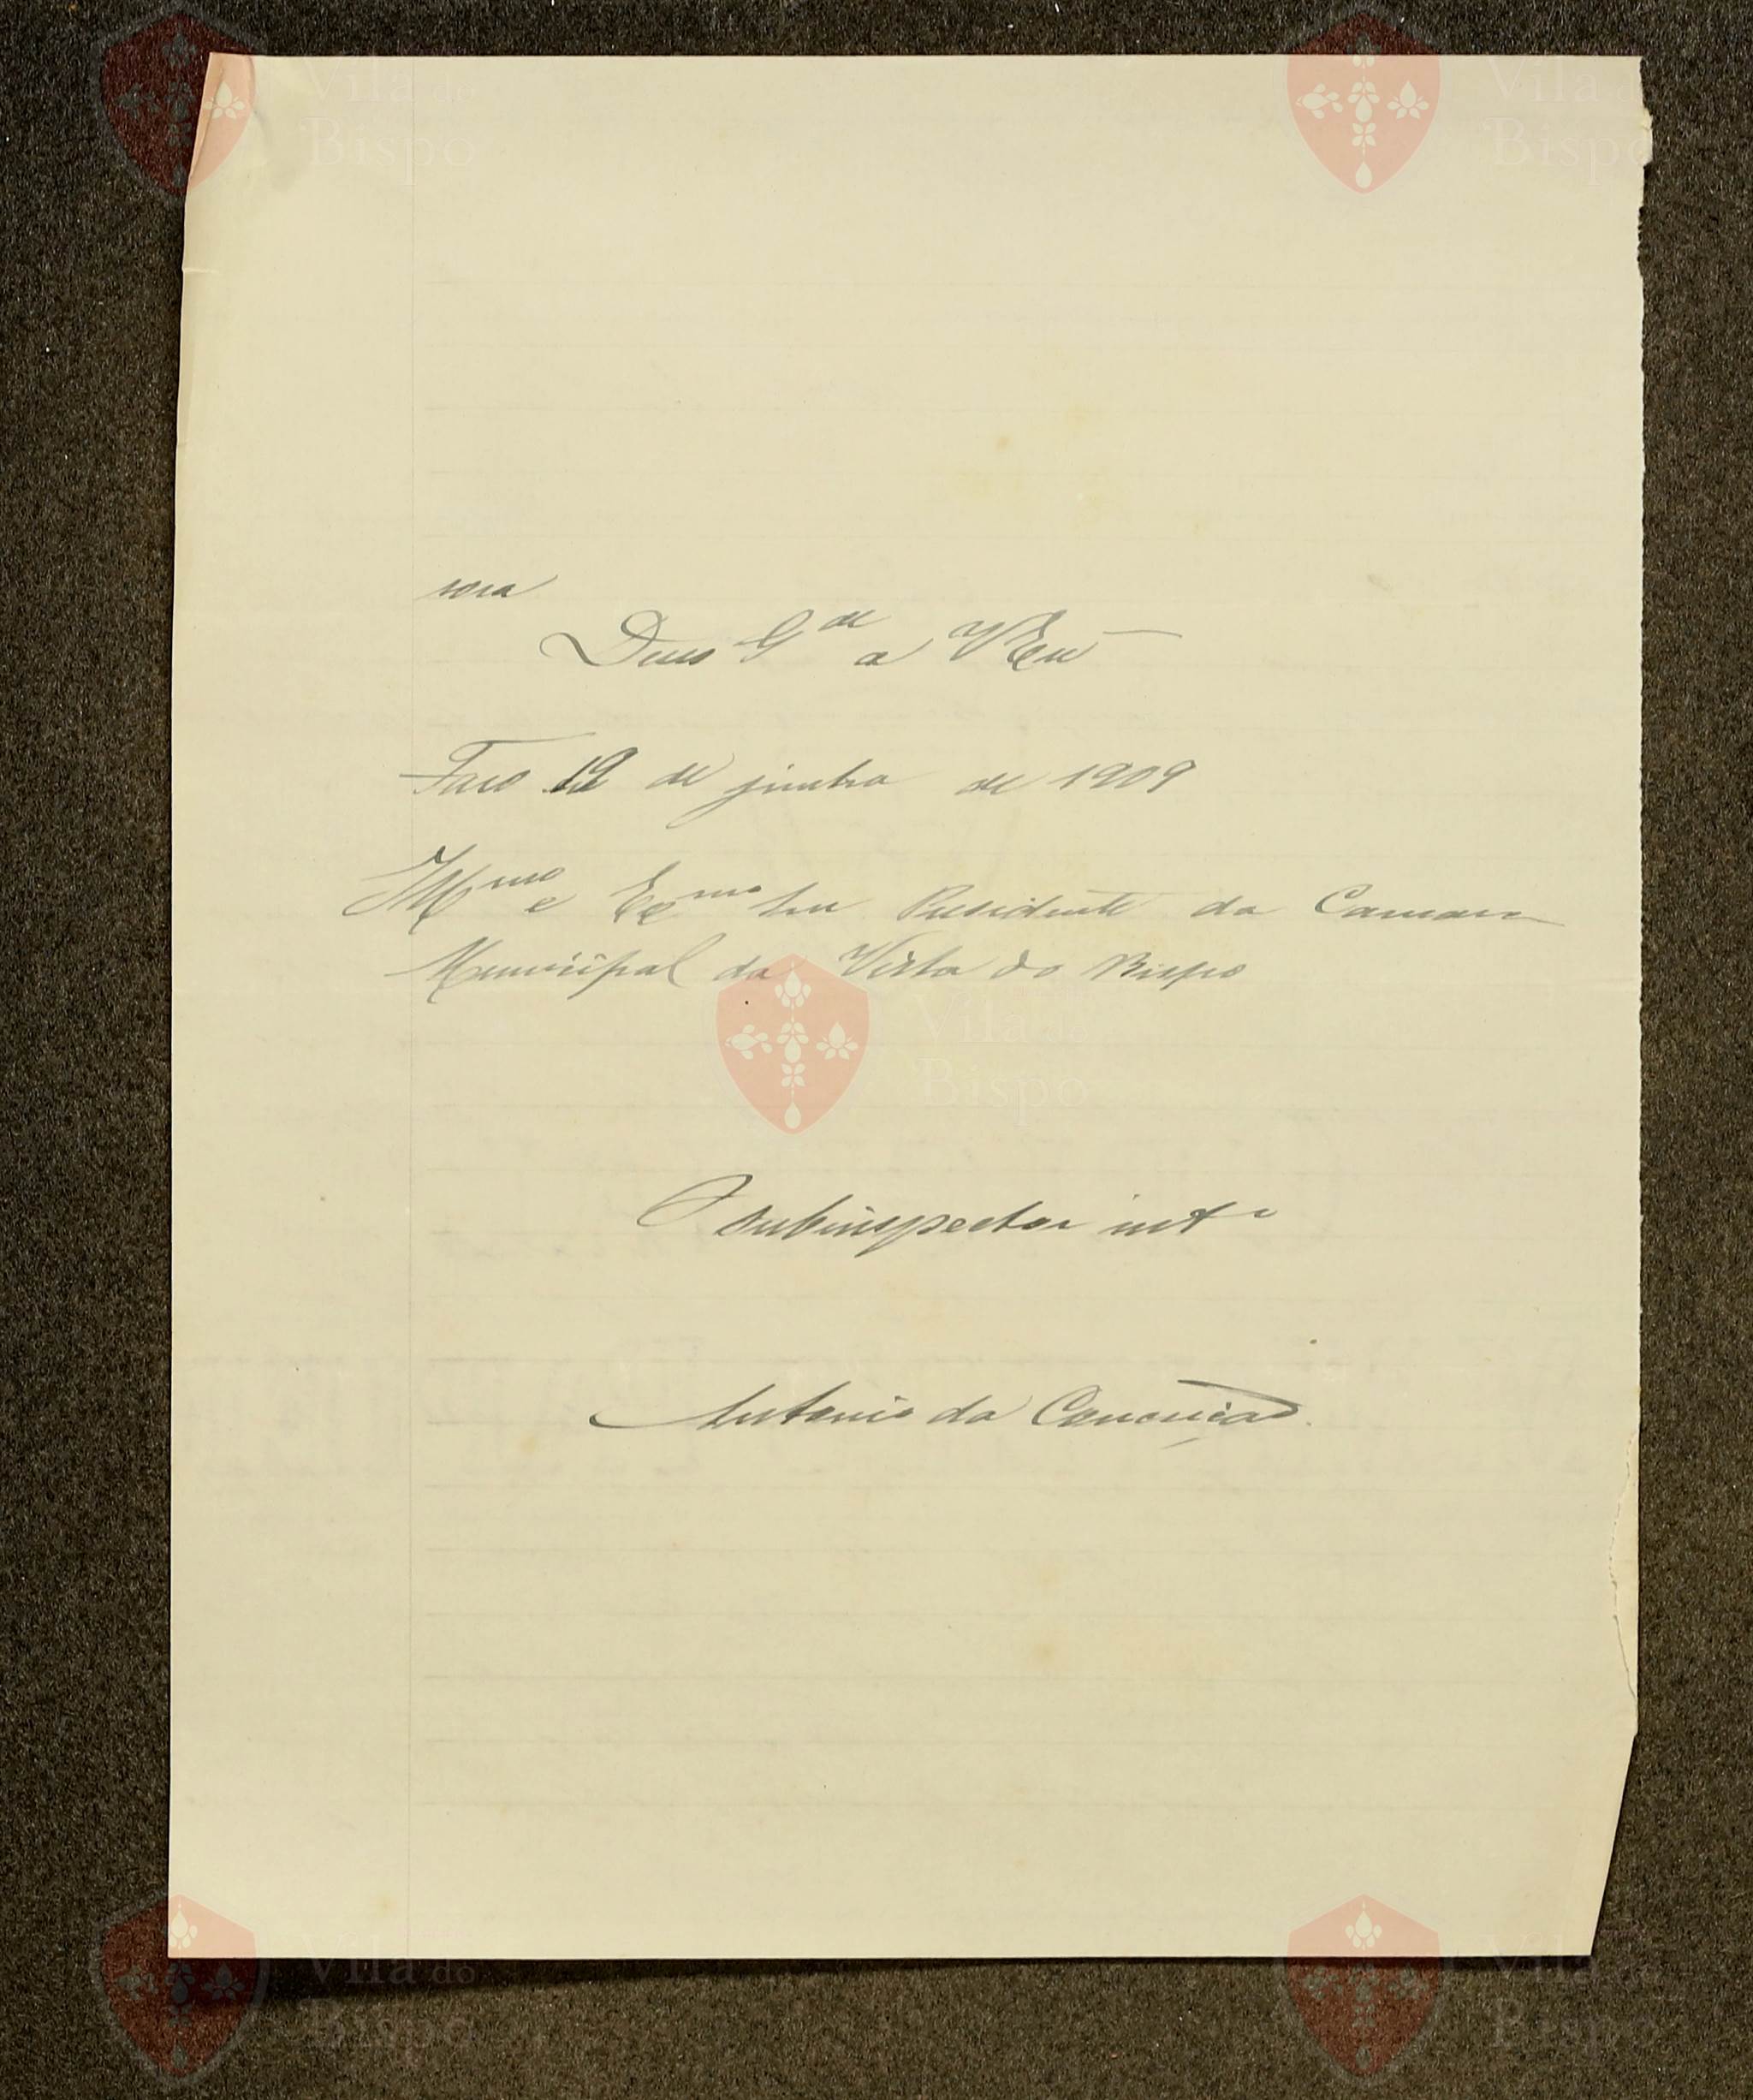 Vila do
Bispo
Vila
Bispo
sora
Deus Gde a VExa
Faro 19 de junho de 1909
Illmo e Exmo Snr Presidente da Camara
Municipal da Villa do Bispo
Vila do
Bispo
O subinspector into
Antonio da Conceição.
Vila do
Bispo
Vila
Bispo